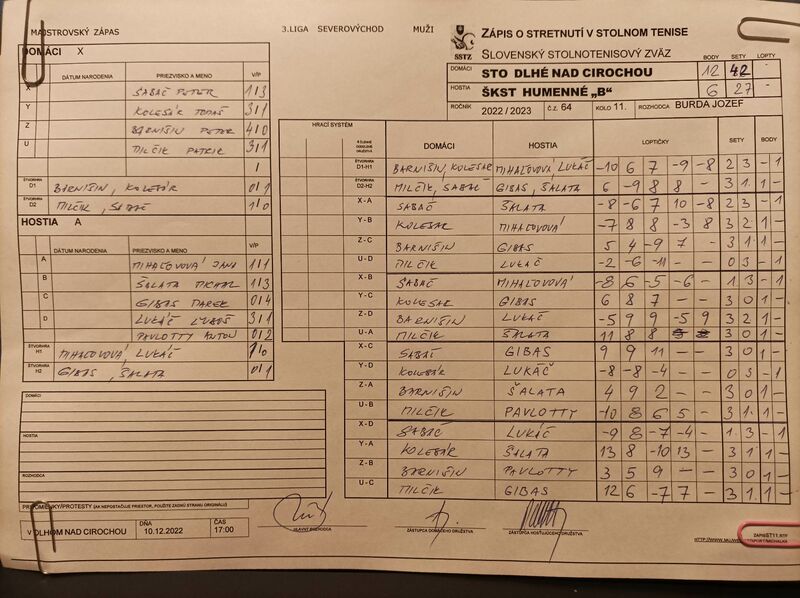 MAJSTROVSKÝ ZÁPAS 3.LIGA SEVEROVÝCHOD MUŽI
ZÁPIS O STRETNUTÍ V STOLNOM TENISE
SLOVENSKÝ STOLNOTENISOVÝ ZVÄZ
SSTZ
BODY SETY LOPTY
DOMÁCI STO DLHÉ NAD CIROCHOU 12 42 -
HOSTIA ŠKST HUMENNÉ „B" 6 27 -
ROČNÍK 2022 / 2023 Č.Z. 64 KOLO 11. ROZHODCA BURDA JOZEF
DOMÁCI X
DÁTUM NARODENIA PRIEZVISKO A MENO V/P
X ŠABAČ PETER 1/3
Y KOLESÁR TOMÁŠ 3/1
Z BARNIŠIN PETER 4/0
U MILČIK PATRIK 3/1
/
ŠTVORHRA D1 BARNIŠIN, KOLESÁR 0/1
ŠTVORHRA D2 MILČIK, ŠABAČ 1/0
HOSTIA A
DÁTUM NARODENIA PRIEZVISKO A MENO V/P
A MIHAĽOVOVÁ JANA 1/1
B ŠALATA MICHAL 3/1
C GIBAS MAREK 0/4
D LUKÁČ ĽUBOŠ 3/1
PAVLOTTY ANTON 0/2
ŠTVORHRA H1 MIHAĽOVOVÁ, LUKÁČ 1/0
ŠTVORHRA H2 GIBAS, ŠALATA 0/1
DOMÁCI
HOSTIA
ROZHODCA
PRIPOMIENKY/PROTESTY (AK NEPOSTAČUJE PRIESTOR, POUŽITE ZADNÚ STRANU ORIGINÁLU)
V DLHOM NAD CIROCHOU DŇA 10.12.2022 ČAS 17:00
HRACÍ SYSTÉM DOMÁCI HOSTIA LOPTIČKY SETY BODY
4 ČLENNÉ DRUŽSTVÁ
ŠTVORHRA D1-H1 BARNIŠIN, KOLESAR MIHAĽOVOVÁ, LUKÁČ -10 6 7 -9 -8 2 3 - 1
ŠTVORHRA D2-H2 MILČIK, SABAČ GIBAS, ŠALATA 6 -9 8 8 - 3 1 1 -
X-A SABAČ ŠALATA -8 -6 7 10 -8 2 3 - 1
Y-B KOLESAR MIHAĽOVOVÁ -7 8 8 -3 8 3 2 1 -
Z-C BARNIŠIN GIBAS 5 4 -9 7 - 3 1 1 -
U-D MILČIK LUKÁČ -2 -6 -11 - - 0 3 - 1
X-B ŠABAČ MIHAĽOVOVÁ -8 6 -5 -6 - 1 3 - 1
Y-C KOLESAR GIBAS 6 8 7 - - 3 0 1 -
Z-D BARNIŠIN LUKÁČ -5 9 9 -5 9 3 2 1 -
U-A MILČIK ŠALATA 11 8 8 3 0 1 -
X-C SABAČ GIBAS 9 9 11 - - 3 0 1 -
Y-D KOLESÁR LUKÁČ -8 -8 -4 - - 0 3 - 1
Z-A BARNIŠIN ŠALATA 4 9 2 - - 3 0 1 -
U-B MILČIK PAVLOTTY -10 8 6 5 - 3 1 1 -
X-D SABAČ LUKÁČ -9 8 -7 -4 - 1 3 - 1
Y-A KOLESÁR ŠALATA 13 8 -10 13 - 3 1 1 -
Z-B BARNIŠIN PAVLOTTY 3 5 9 - - 3 0 1 -
U-C MILČIK GIBAS 12 6 -7 7 - 3 1 1 -
HLAVNÝ ROZHODCA ZÁSTUPCA DOMÁCEHO DRUŽSTVA ZÁSTUPCA HOSŤUJÚCEHO DRUŽSTVA
ZAPISST11.RTF